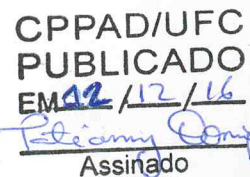 CPPAD/UFC
PUBLICADO
EM 12 / 12 / 16
Assinado